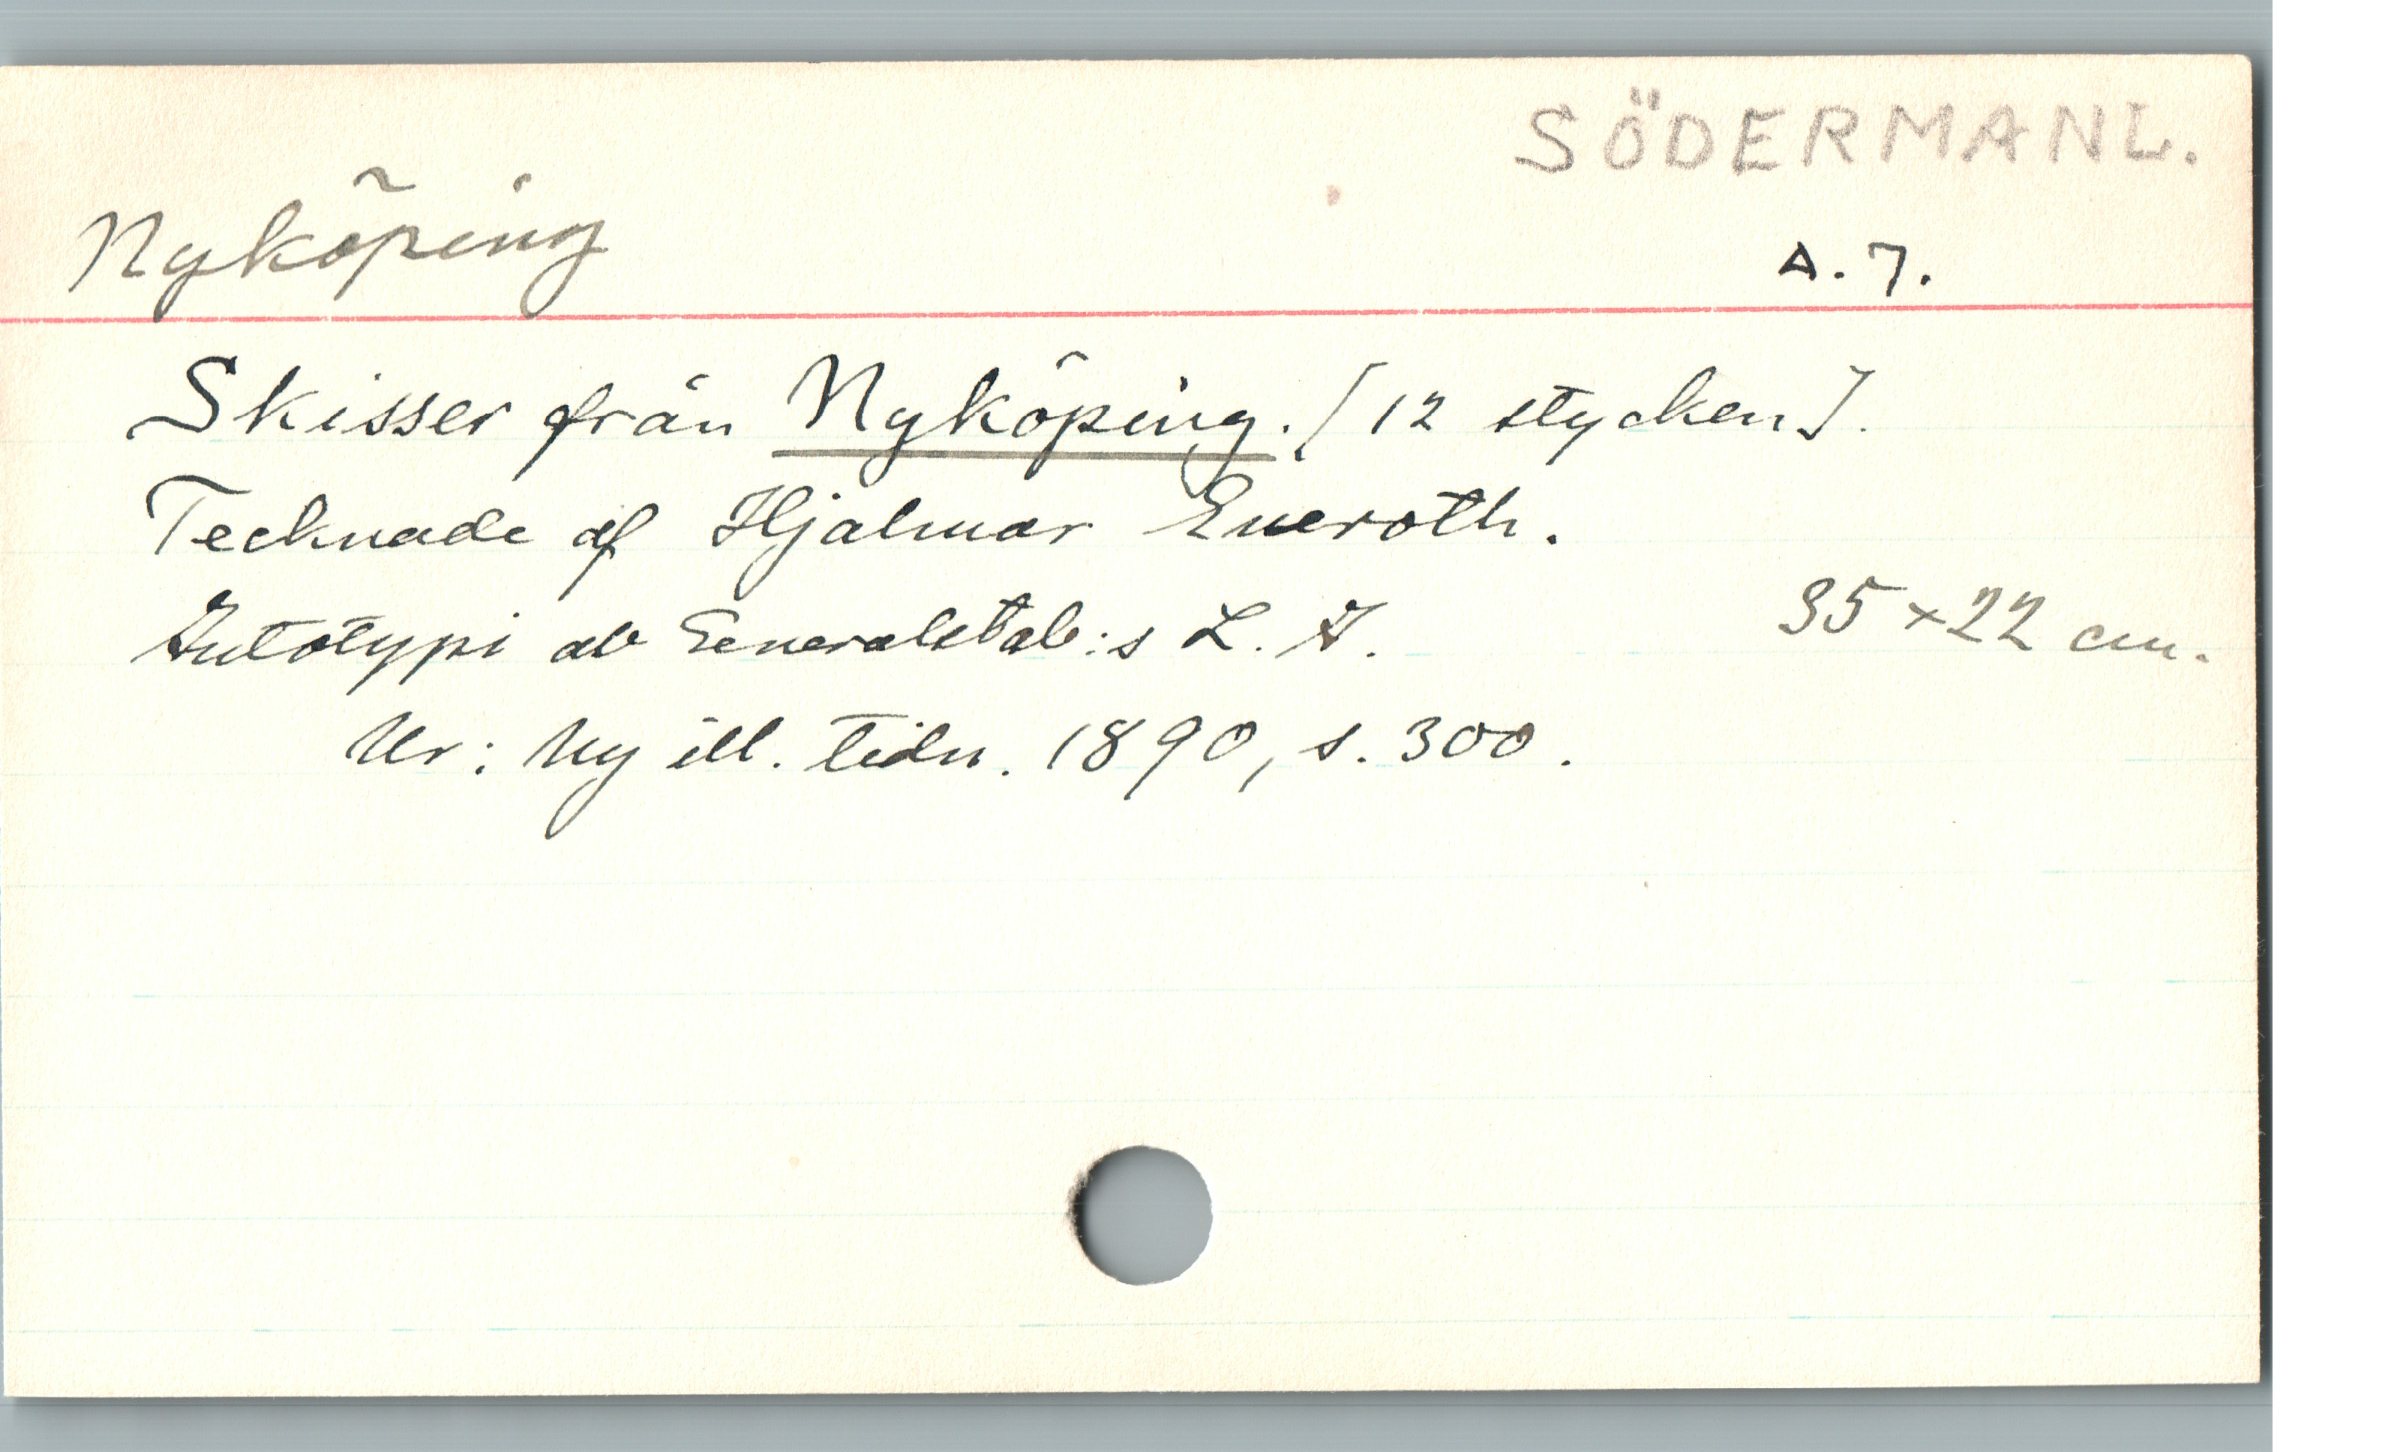 SÖDERMANL.
Nyköping
A. 7.
Skisser från Nyköping. [12 stycken].
Tecknade af Hjalmar Eneroth.
Autotypi av Generalstab:s L. A.
35 × 22 cm.
Ur: Ny ill. tidn. 1890, s. 300.